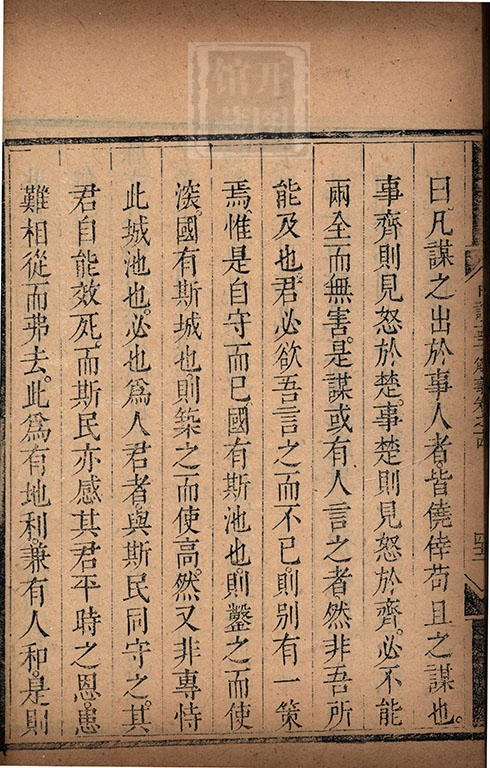 曰凡謀之出於事人者皆僥倖苟且之謀也。
事齊則見怒於楚。事楚則見怒於齊。必不能
兩全而無害。是謀或有人言之者然非吾所
能及也。君必欲吾言之而不已。則別有一策
焉。惟是自守而已。國有斯池也。則鑿之而使
深。國有斯城也。則築之而使高。然又非專恃
此城池也。必也為人君者。與斯民同守之。其
君自能效死。而斯民亦感其君平時之恩。患
難相從而弗去。此為有地利。兼有人和。是則